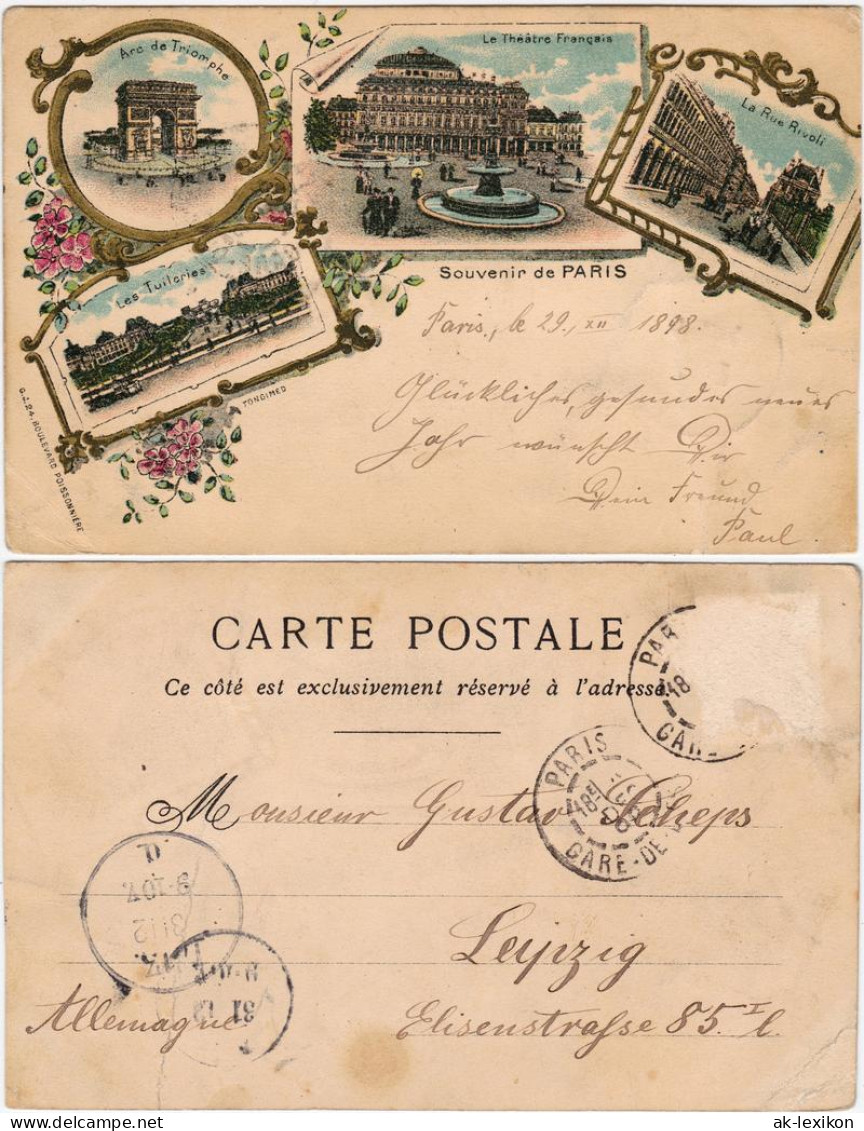 Arc de Triomphe
Le Théâtre Français
La Rue Rivoli
Les Tuileries
Souvenir de PARIS
G.L. 24, BOULEVARD POISSONNIÈRE
Paris, le 29. XII 1898.
Glückliches, gesundes neues
Jahr wünscht Dir
Dein Freund
Paul.
CARTE POSTALE
Ce côté est exclusivement réservé à l'adresse.
PAR
18
GARE
PARIS
18E
GARE-DE
Monsieur Gustav Scheps
9-10V.
3112
31 12
Leipzig
Allemagne
Elisenstraße 85. I l.
ak-lexikon